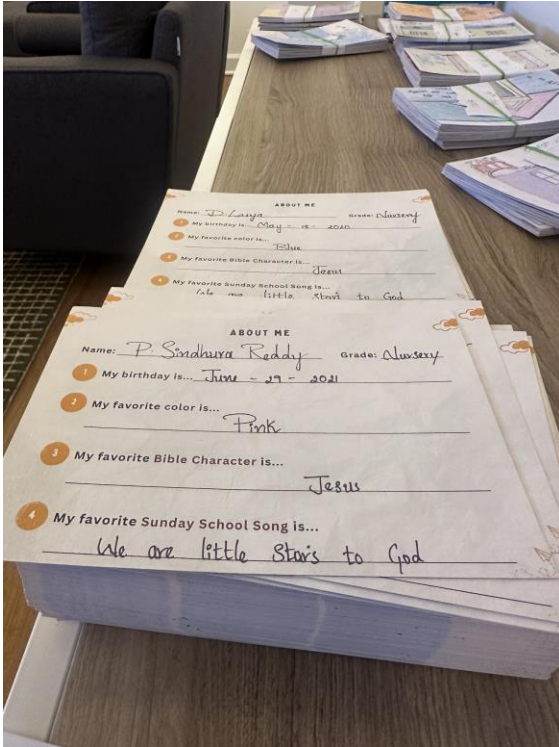 ABOUT ME
Name: D. Lasya Grade: Nursery
1 My birthday is... May - 18 - 2020
2 My favorite color is...
Blue
3 My favorite Bible Character is...
Jesus
4 My favorite Sunday School Song is...
We are little stars to God
ABOUT ME
Name: P. Sindhura Reddy Grade: Nursery
1 My birthday is... June - 29 - 2021
2 My favorite color is...
Pink
3 My favorite Bible Character is...
Jesus
4 My favorite Sunday School Song is...
We are little Stars to God